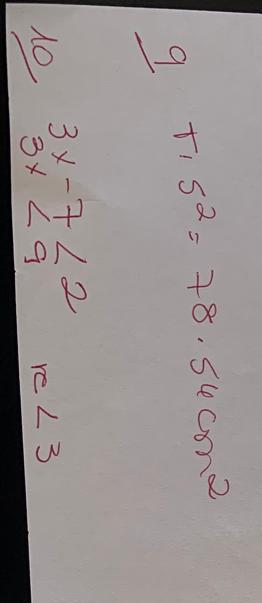 9 π 5² = 78.54 cm²
10 3x - 7 < 2
3x < 9 x < 3